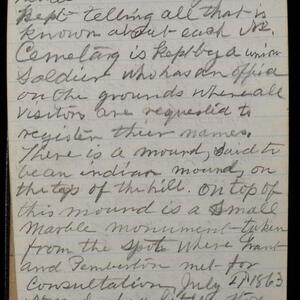 kept telling all that is
known about each No.
Cemetary is kept by a union
Soldier who has an office
on the grounds where all
visitors are requested to
register their names.
There is a mound, said to
be an indian mound, on
the top of the hill. On top of
this mound is a small
Marble monument taken
from the spot where Grant
and Pemberton met for
Consultation, July 4th 1863